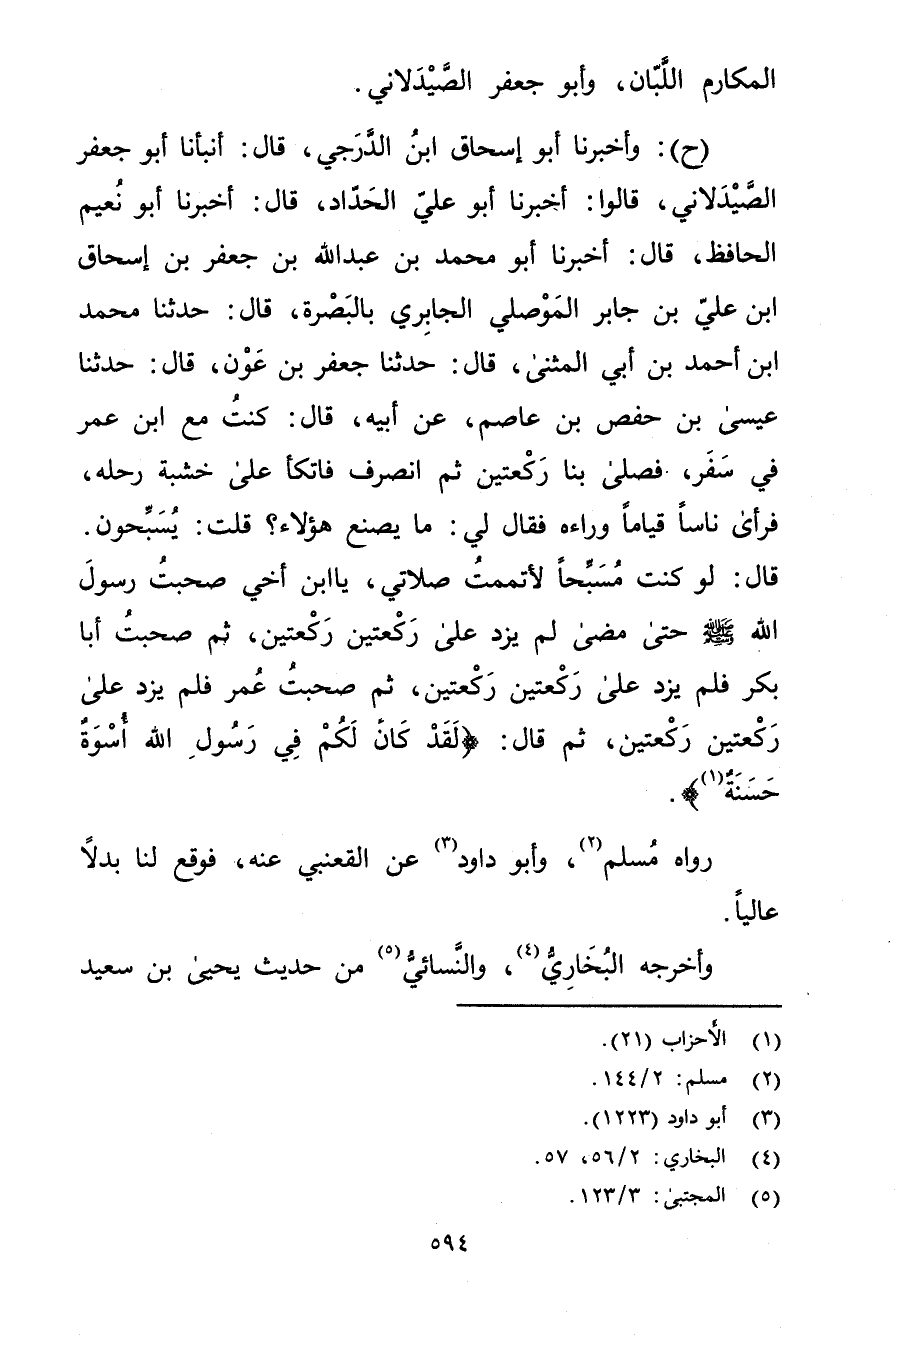 المكارم اللَّبّان، وأبو جعفر الصَّيْدَلاني.
(ح): وأخبرنا أبو إسحاق ابنُ الدَّرَجي، قال: أنبأنا أبو جعفر
الصَّيْدَلاني، قالوا: أخبرنا أبو عليّ الحَدّاد، قال: أخبرنا أبو نُعيم
الحافظ، قال: أخبرنا أبو محمد بن عبدالله بن جعفر بن إسحاق
ابن عليّ بن جابر المَوْصلي الجابِري بالبَصْرة، قال: حدثنا محمد
ابن أحمد بن أبي المثنىٰ، قال: حدثنا جعفر بن عَوْن، قال: حدثنا
عيسىٰ بن حفص بن عاصم، عن أبيه، قال: كنتُ مع ابن عمر
في سَفَر، فصلىٰ بنا رَكْعتين ثم انصرف فاتكأ علىٰ خشبة رحله،
فرأىٰ ناساً قياماً وراءه فقال لي: ما يصنع هؤلاء؟ قلت: يُسَبِّحون.
قال: لو كنت مُسَبِّحاً لأتممتُ صلاتي، ياابن أخي صحبتُ رسولَ
الله ﷺ حتىٰ مضىٰ لم يزد علىٰ رَكْعتين رَكْعتين، ثم صحبتُ أبا
بكر فلم يزد علىٰ رَكْعتين رَكْعتين، ثم صحبتُ عُمر فلم يزد علىٰ
رَكْعتين رَكْعتين، ثم قال: ﴿لَقَدْ كَانَ لَكُمْ فِي رَسُولِ الله أُسْوَةٌ
حَسَنَةٌ(١)﴾.
رواه مُسلم(٢)، وأبو داود(٣) عن القعنبي عنه، فوقع لنا بدلاً
عالياً.
وأخرجه البُخَارِيُّ(٤)، والنَّسائيُّ(٥) من حديث يحيىٰ بن سعيد
(١) الأحزاب (٢١).
(٢) مسلم: ١٤٤/٢.
(٣) أبو داود (١٢٢٣).
(٤) البخاري: ٥٦/٢، ٥٧.
(٥) المجتبىٰ: ١٢٣/٣.
٥٩٤